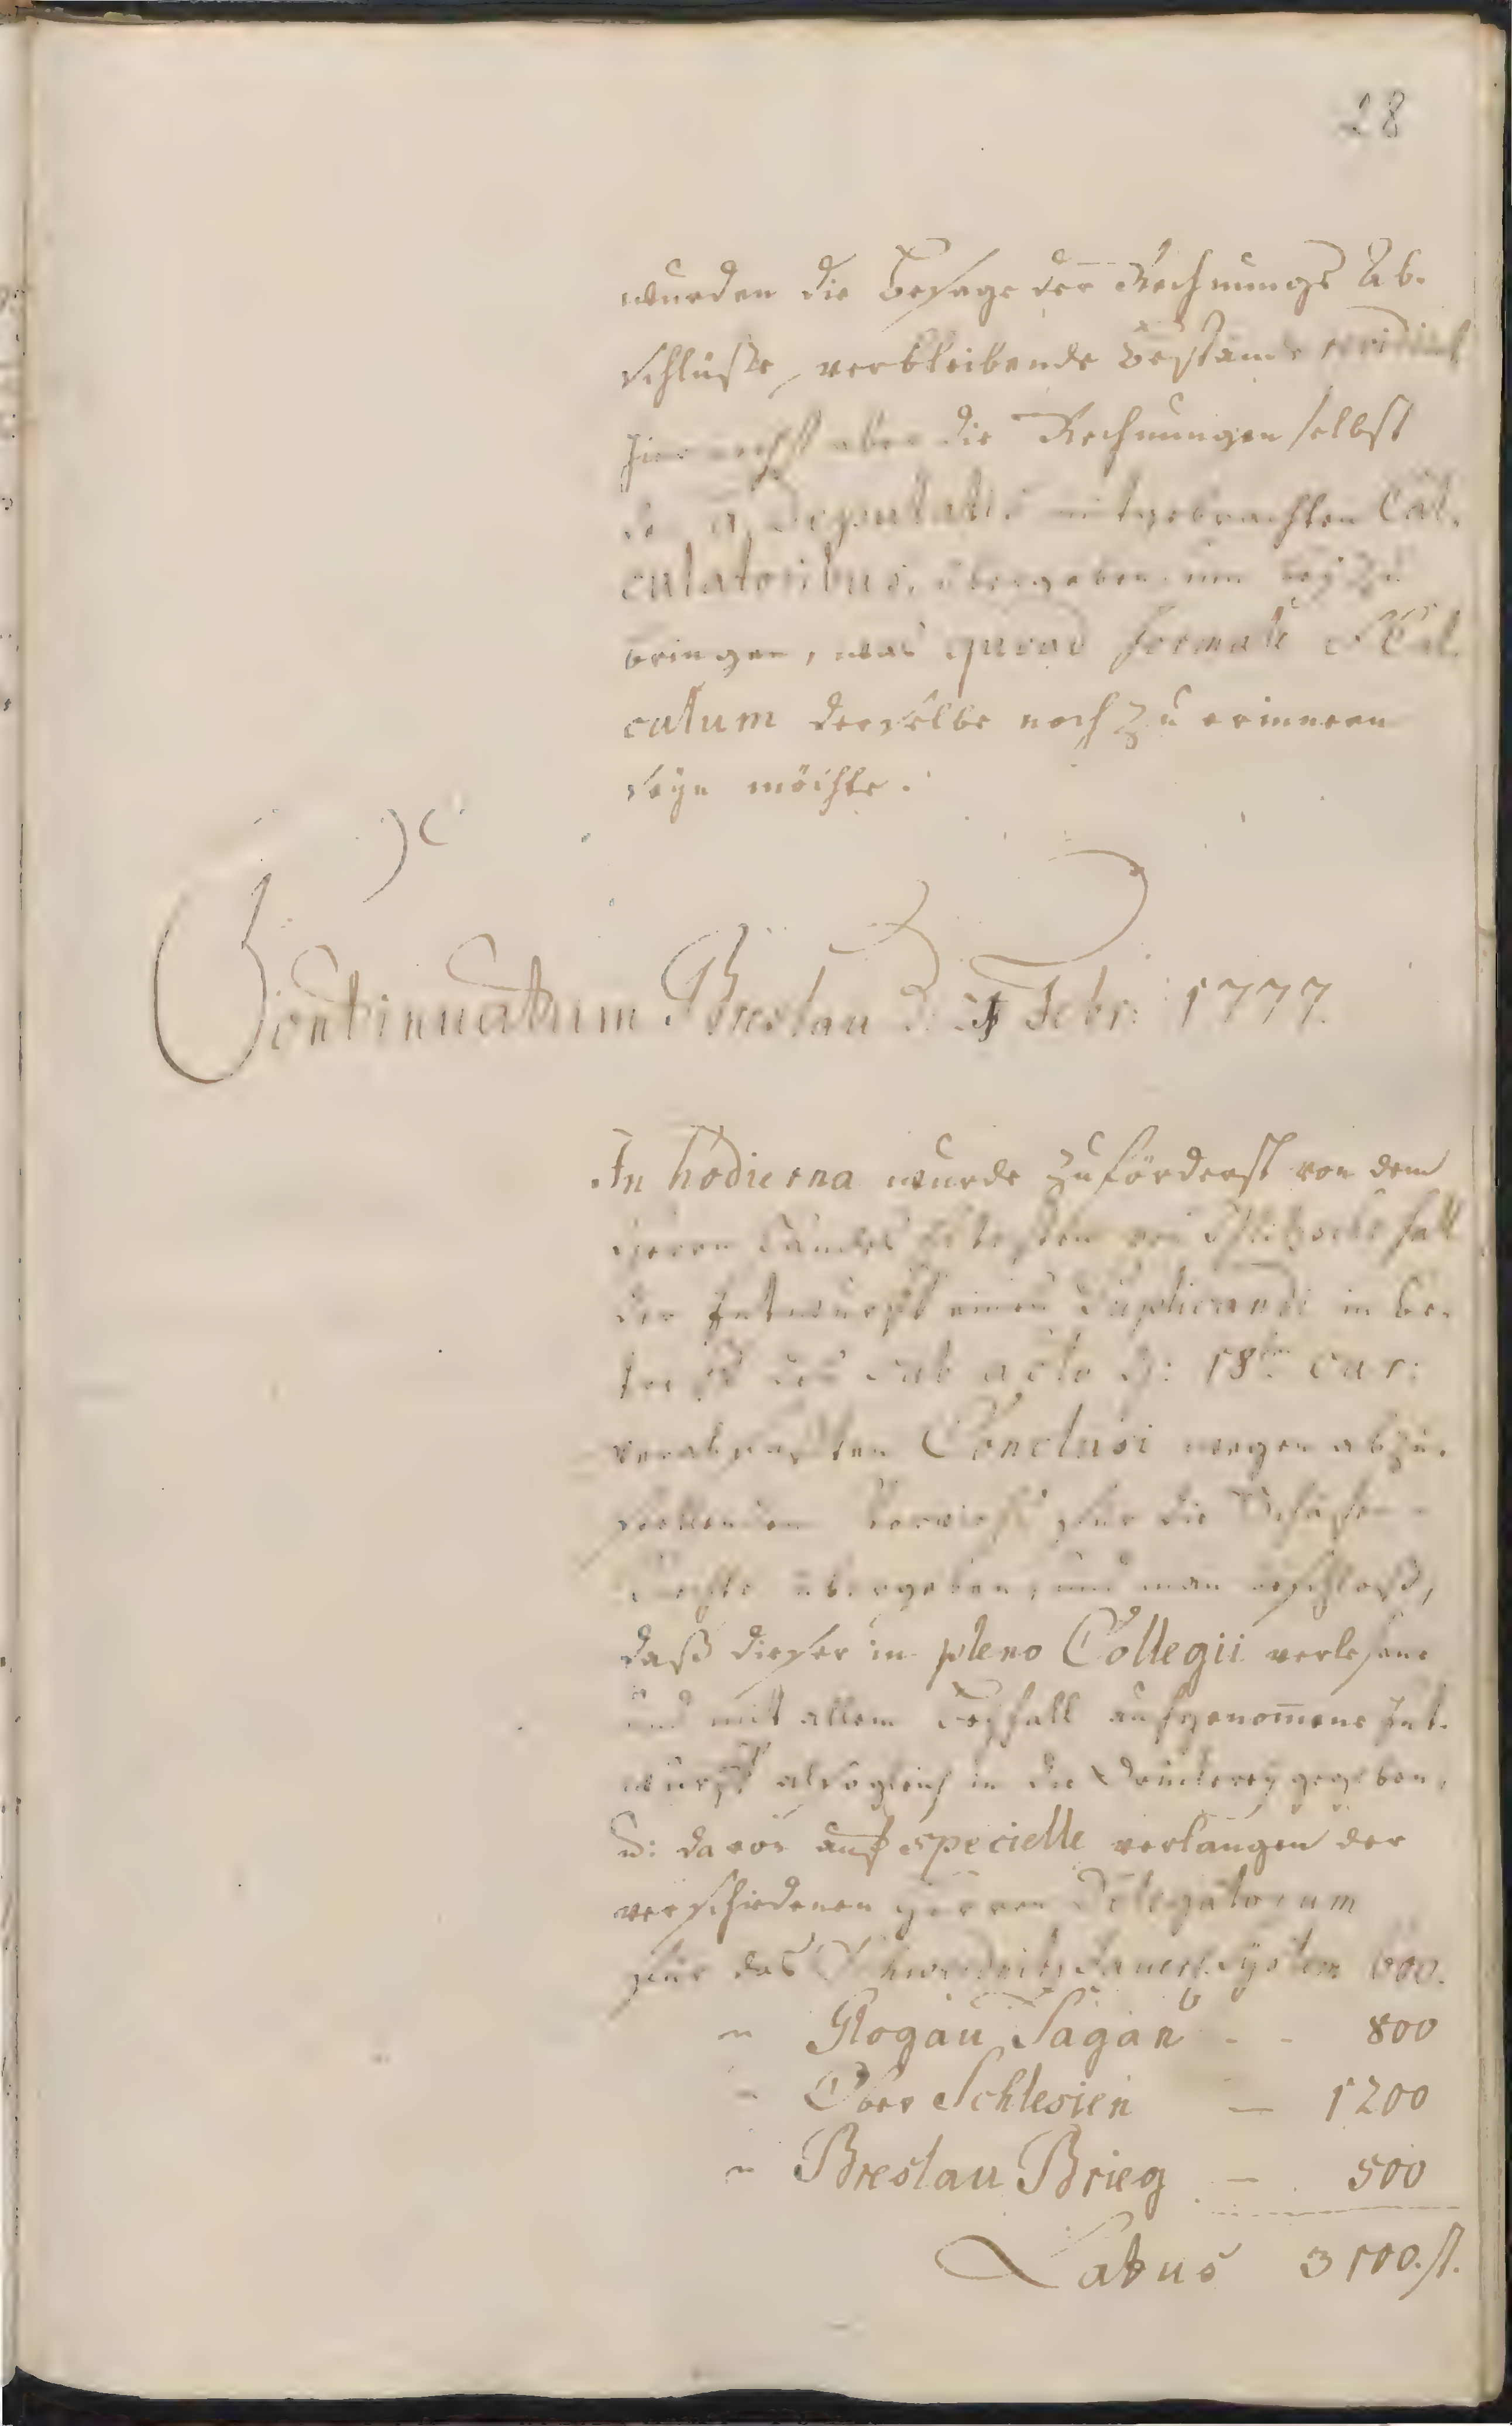 28
wurden die Besage der Rechnungs Ab-
schlüße, verbleibende Bestände revidirt
hiernechst aber die Rechnungen selbst
den a Deputatis mitgebrachten Cal-
culatoribus, übergeben um beyzu
bringen, was quoad formale et Cal-
culum derselbe noch zu erinnern
seyn möchte.
Continuatum Breslau d. 21 Febr: 1777.
In hodierna wurde zuförderst von dem
Herrn Landes Eltesten von
der Entwurff eines in Be-
treff des sub acto d: 18ten cur:
verabfaßten Conclusi wegen abzu-
stellenden für die Schäfer-
Knechte übergeben, und man beschloß,
daß dieser in pleno Collegii verlesene
und mit allem Beyfall aufgenom̄ene Ent-
wurff alsogleich in die Druckerey gegeben,
u: davon auf specielle verlangen der
verschiedenen Herren Delegatorum
für das Schweidnitz Jauersche System 600.
" Glogau Sagan - - 800
" Ober Schlesien — 1200
" Breslau Brieg — 500
Latus 3100. st.